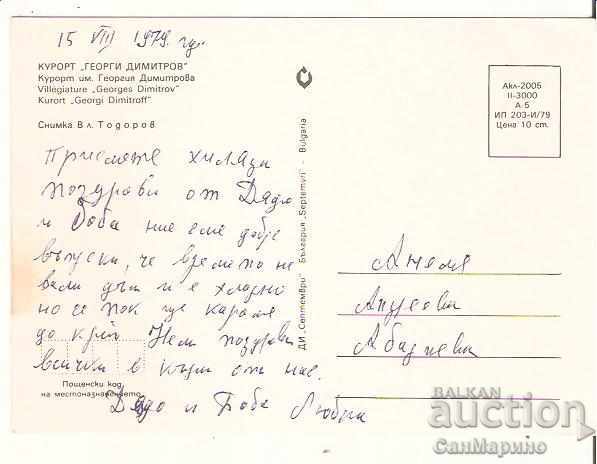 15 VIII 1979 год.
КУРОРТ „ГЕОРГИ ДИМИТРОВ"
Курорт им. Георгия Димитрова
Villegiature „Georges Dimitrov"
Kurort „Georgi Dimitroff"
Снимка Вл. Тодоров
Приемете хиляди
поздрави от Дядо
и Баба ние сме добре
въпреки, че времето не
вали дъжд и е хладно
но се пак ще караме
до край Нели поздрави
всички в къщи от нас.
Дядо и Баба Любка
Пощенски код
на местоназначението
ДИ „Септември" България „Septemvri" - Bulgaria
Акл-2005
II-3000
А-5
ИП 203-И/79
Цена 10 ст.
Анелия
Андреева
Абаджиева
BALKAN
auction
СанМарино